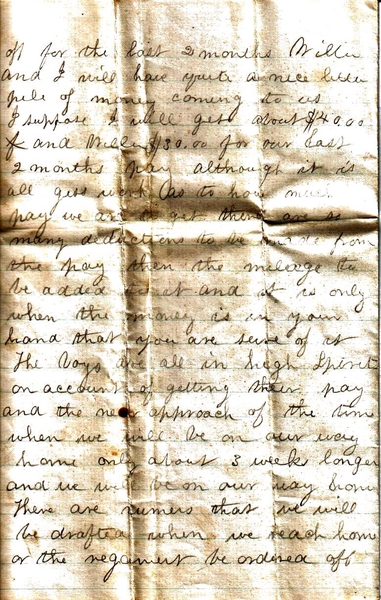 off for the last 2 months Willie
and I will have quite a nice little
pile of money coming to us
I suppose I will get about $40.00
& and Willie $30.00 for our last
2 months pay although it is
all gess work as to how much
pay we are to get there are so
many deductions to be made from
the pay then the mileage to
be added to it and it is only
when the money is in your
hand that you are sure of it
The boys are all in high Spirits
on account of getting their pay
and the near approach of the time
when we will be on our way
home only about 3 weeks longer
and we will be on our way home
There are rumers that we will
be drafted when we reach home
or the regament be ordered off